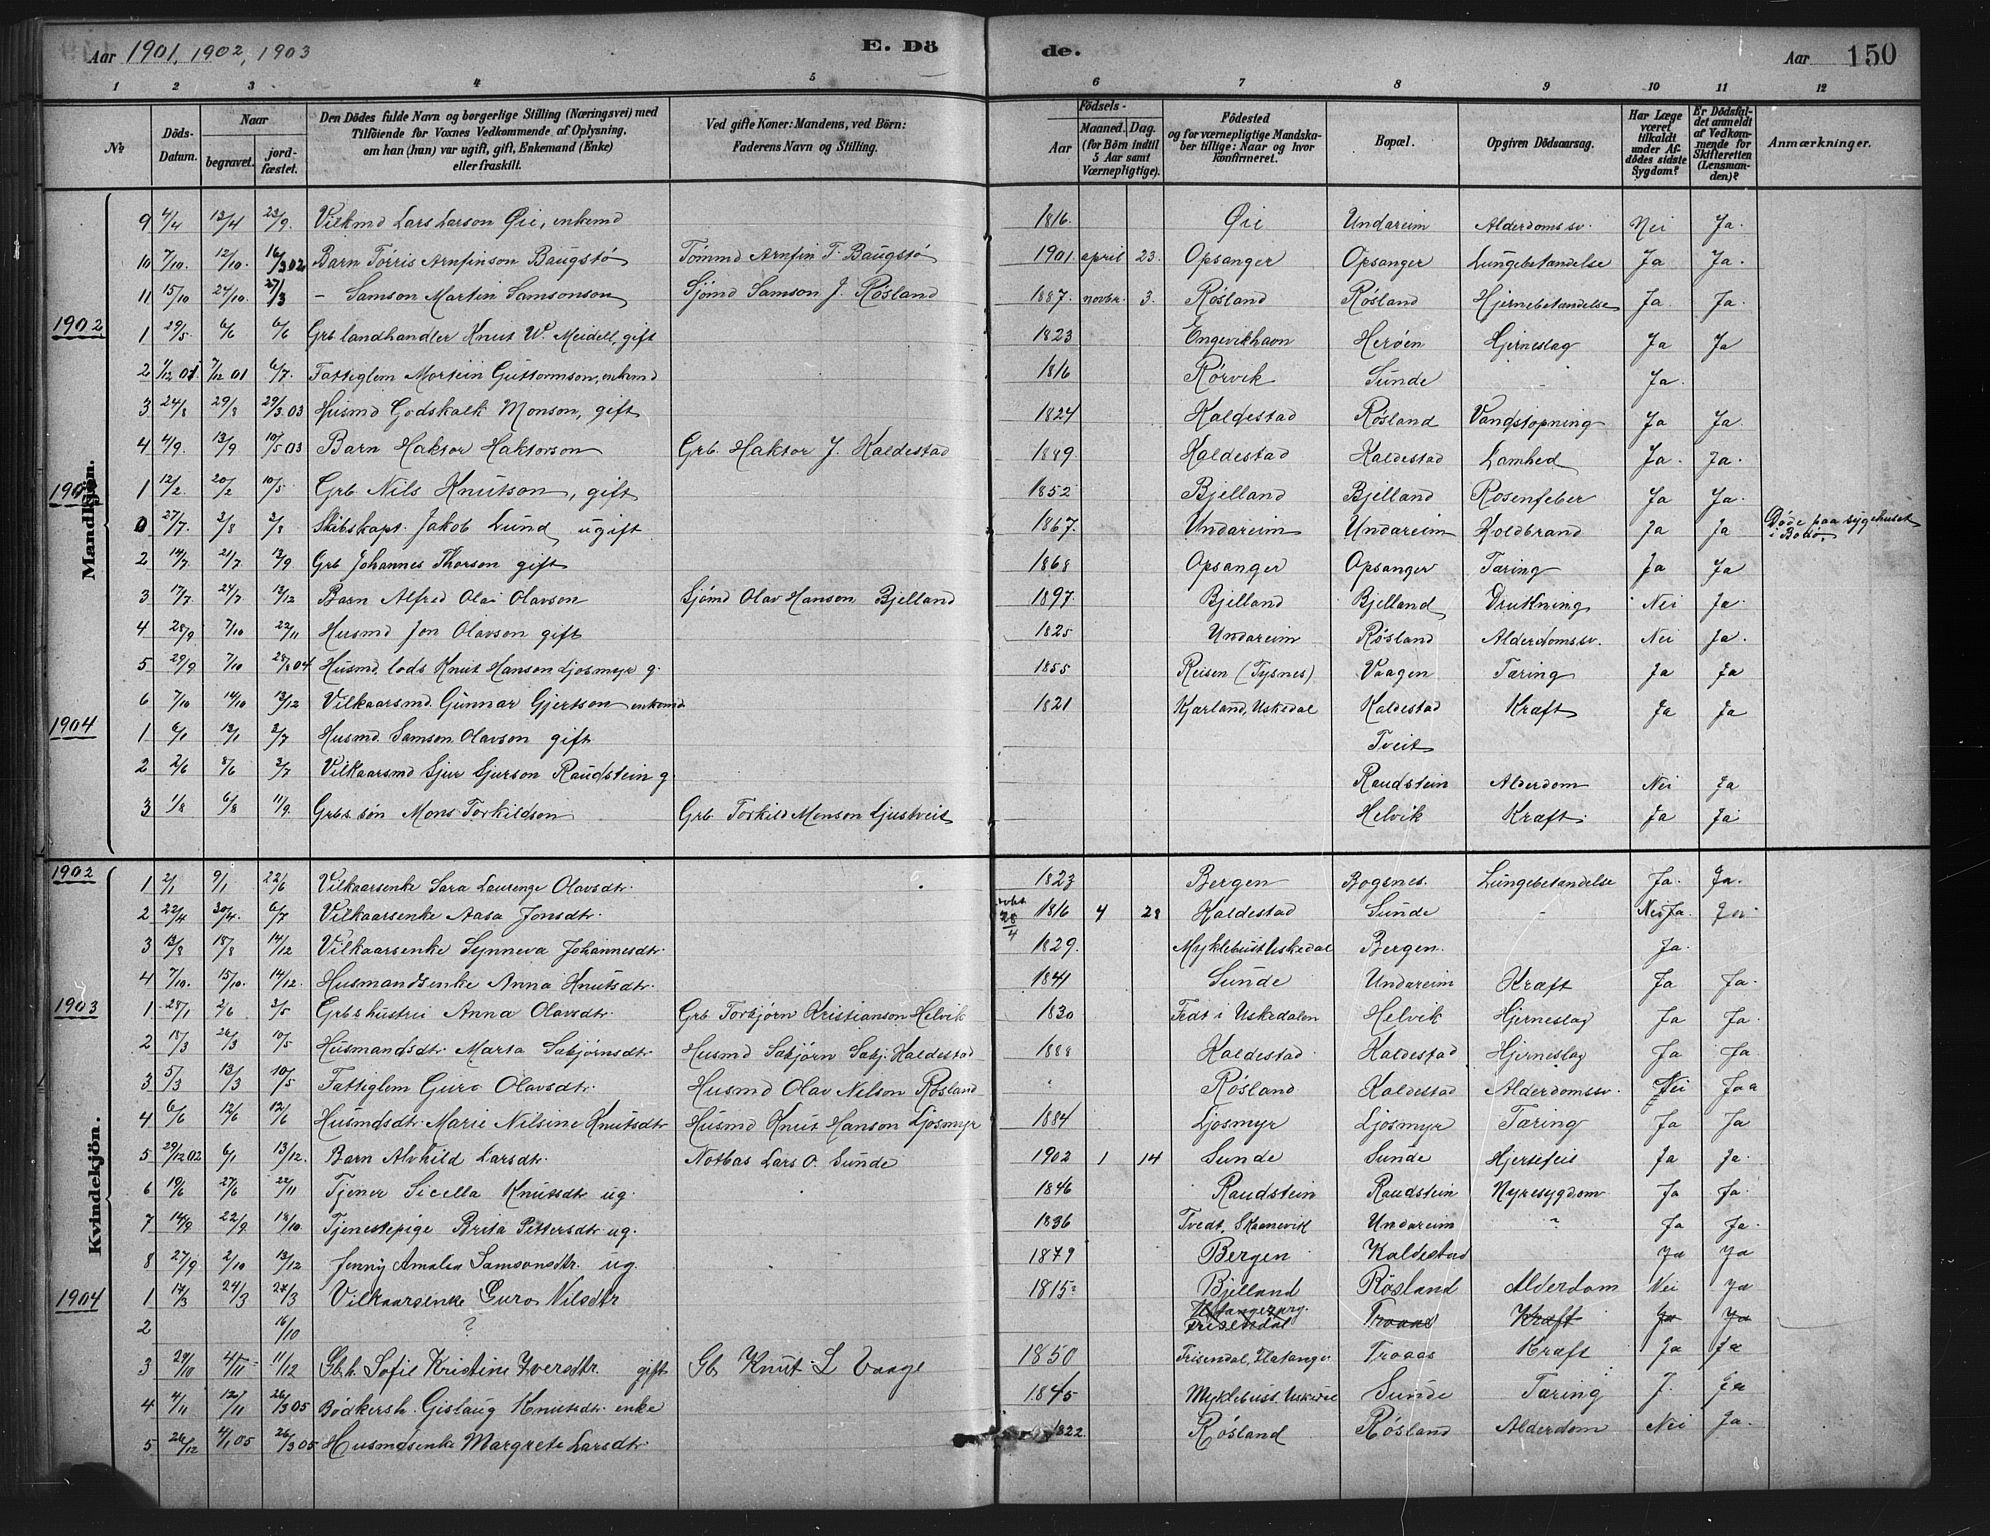 Aar 1901, 1902, 1903 E. Dö de. Aar 150
1 2 3 4 5 6 7 8 9 10 11 12
No
Döds-Datum.
Naar
begravet.
jordfæstet.
Den Dödes fulde Navn og borgerlige Stilling (Næringsvei) med
Tilföiende for Voxnes Vedkommende af Oplysning,
om han (hun) var ugift, gift, Enkemand (Enke)
eller fraskilt.
Ved gifte Koner: Mandens, ved Börn:
Faderens Navn og Stilling.
Födsels-
Aar
Maaned. Dag.
(for Börn indtil
5 Aar samt
Værnepligtige).
Födested
og for værnepligtige Mandskaber tillige: Naar og hvor
konfirmeret.
Bopæl.
Opgiven Dödsaarsag.
Har Læge
været
tilkaldt
under Afdödes sidste
Sygdom?
Er Dödsfaldet anmeldt
af Vedkommende for
Skifteretten
(Lensmanden)?
Anmærkninger.
Mandkjön.
9 4/4 13/4 23/9 Vilkmd Lars Larson Øie, enkemd 1816. Øie Undareim Alderdomssv. Nei Ja.
10 7/10. 12/10. 16/3 02 Barn Torris Arnfinson Baugstø Tømmd Arnfin T. Baugstø 1901 april 23. Opsanger Opsanger Lungebetændelse Ja Ja.
11 15/10 24/10. 27/3 - Samson Martin Samsonson Sjømd Samson J. Røsland 1887. novbr. 3. Røsland Røsland Hjernebetændelse Ja. Ja.
1902
1 29/5 6/6 6/6 Grb landhandler Knut W. Meidell, gift 1823 Engevikhavn Herøen Hjerneslag Ja Ja
2 1/12 01 7/12 01 6/7. Fattiglem Mortein Guttormson, enkemd 1816 Rørvik Sunde - Ja.
3 24/8 29/8 29/3 03 Husmd Godskalk Monson, gift 1824 Kaldestad Røsland Vandstopning Ja Ja.
4 4/9. 13/9 10/5 03 Barn Haktor Haktorson Grb. Haktor J. Kaldestad 1889. Kaldestad Kaldestad Lamhed Ja. Ja.
1903
1 12/2. 20/2 10/5 Grb Nils Knutson, gift 1852 Bjelland Bjelland Rosenfeber Ja Ja.
0 27/7. 2/8 2/8 Skibskapt. Jakob Lund, ugift 1867. Undareim Undareim Koldbrand Ja Ja Døde paa sygehuset
i Bodø.
2 14/7 21/7 13/9 Grb Johannes Thorson gift 1868 Opsanger Opsanger Tæring Ja Ja
3 17/7. 24/7 13/12 Barn Alfred Olai Olavson Sjømd Olav Hanson Bjelland 1897. Bjelland Bjelland Drukning Nei Ja.
4 28/9 7/10 22/11 Husmd Jon Olavson gift 1825 Undareim Røsland Alderdomssv. Nei Ja.
5 29/9 7/10 04 Husmd. lods Knut Hanson Ljosmyr g. 1855 Reisen (Tysnes) Vaagen Tæring Ja Ja
6 7/10 14/10 13/12 Vilkaarsmd. Gunnar Gjertson enkemd 1821 Kjærland, Uskedal Kaldestad Kræft Ja Ja
1904
1 6/1 13/1 2/7 Husmd. Samson Olavson gift Tveit
2 2/6 8/6 3/7 Vilkaarsmd Sjur Sjurson Raudstein g. Raudstein Alderdom Nei Ja
3 1/8 6/8 11/9. Grbs. søn Mons Torkildson Grb. Torkild Monson Ljustveit Helvik Kræft. Ja Ja
Kvindekjön.
1902
1 2/1 9/1 22/6 Vilkaarsenke Sara Laurense Olavsdtr. 1823 Bergen Bogsnes. Lungebetændelse Ja. Ja.
2 22/4 30/4. 6/7 Vilkaarsenke Aasa Jonsdtr. 28/4 1816 4 28 Kaldestad Sunde - Nei Ja.
3 13/8 18/8 14/12 Vilkaarsenke Synneva Johannesdtr. 1829. Myklebust Uskedal Bergen. Ja.
4 7/10. 15/10. 14/12. Husmandsenke Anna Knutsdtr. 1841 Sunde Undareim Kræft Ja Ja.
1903
1 28/1 2/6 3/5 Grbs hustru Anna Olavsdtr. Grb Torbjørn Kristianson Helvik 1830 Fedt i Uskedalen Helvik Hjerneslag Ja Ja.
2 18/3 24/3 10/5 Husmandsdtr. Marta Sæbjørnsdtr. Husmd Sæbjørn Sæbj. Kaldestad 1888 Kaldestad Kaldestad Hjerneslag Ja Ja.
3 5/3 13/3 10/5 Fattiglem Guro Olavsdtr. Husmd Olav Nilson Røsland Røsland Kaldestad Alderdomssv. Nei Jaa
4 6/6 12/6 12/6 Husmdsdtr. Marie Nilsine Knutsdtr Husmd Knut Hanson Ljosmyr 1884 Ljosmyr Ljosmyr Tæring Ja Ja
5 29/12 02 6/1 13/12. Barn Alvhild Larsdtr. Notbas Lars O. Sunde 1902 1 14 Sunde Sunde Hjertefeil Ja Ja.
6 19/6 27/6 22/11 Tjener Sicella Knutsdtr ug. 1846 Raudstein Raudstein Nyresygdom Ja Ja.
7 14/9 22/9 18/10 Tjenestepige Brita Pettersdtr ug. 1836 Tvedt, Skaanevik Undareim ? Ja Ja.
8 27/9. 2/10 13/12 Jenny Amalia Samsonsdtr. ug. 1879 Bergen Kaldestad Ja Ja
1904
1 17/3 24/3 27/3 Vilkaarsenke Guro Nilsdtr 1815 Bjelland Røsland Alderdom Nei Ja
2 16/10 ? Frisendal Troaas Kræft Ja Ja
3 29/10 11/12 Gbh. Sofie Kristine Iversdtr. gift Gb Knut L Vaage 1850 Frisendal, Flatanger Troaas Kræft Ja Ja
4 4/11 12/11 26/3 05 Bødkersh. Gislaug Knutsdtr. enke 1845 Myklebust Uskedal Sunde Tæring J. Ja
5 28/12 4/1 05 26/3 05 Husmdsenke Margrete Larsdtr. 1822 Røsland Røsland Alderdom Nei Ja.